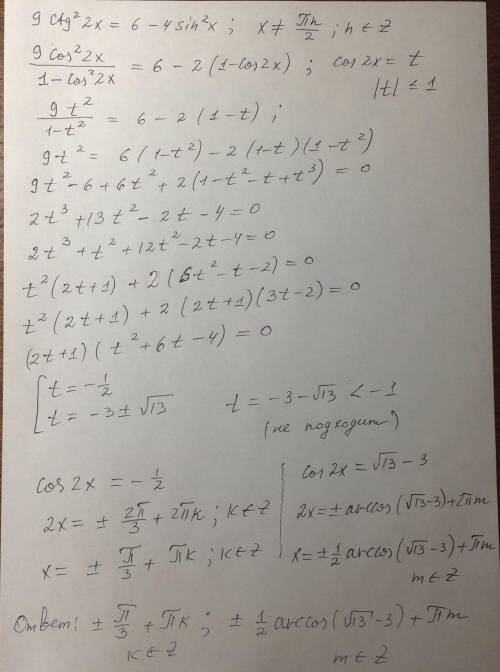 9 ctg²2x = 6 - 4 sin²x ; x ≠ πn/2 ; n ∈ Z
9 cos²2x / 1 - cos²2x = 6 - 2 (1 - cos2x) ; cos 2x = t
|t| ≤ 1
9t² / 1-t² = 6 - 2 (1 - t) ;
9t² = 6 (1-t²) - 2 (1-t)(1-t²)
9t² - 6 + 6t² + 2(1 - t² - t + t³) = 0
2t³ + 13t² - 2t - 4 = 0
2t³ + t² + 12t² - 2t - 4 = 0
t²(2t+1) + 2(6t² - t - 2) = 0
t²(2t+1) + 2(2t+1)(3t-2) = 0
(2t+1)(t² + 6t - 4) = 0
[ t = -1/2
t = -3 ± √13
t = -3 - √13 < -1
(не подходит)
cos 2x = -1/2
2x = ± 2π/3 + 2πk ; k ∈ Z
x = ± π/3 + πk ; k ∈ Z
cos 2x = √13 - 3
2x = ± arccos(√13 - 3) + 2πm
x = ± 1/2 arccos(√13 - 3) + πm
m ∈ Z
Ответ: ± π/3 + πk ; ± 1/2 arccos(√13 - 3) + πm
k ∈ Z m ∈ Z